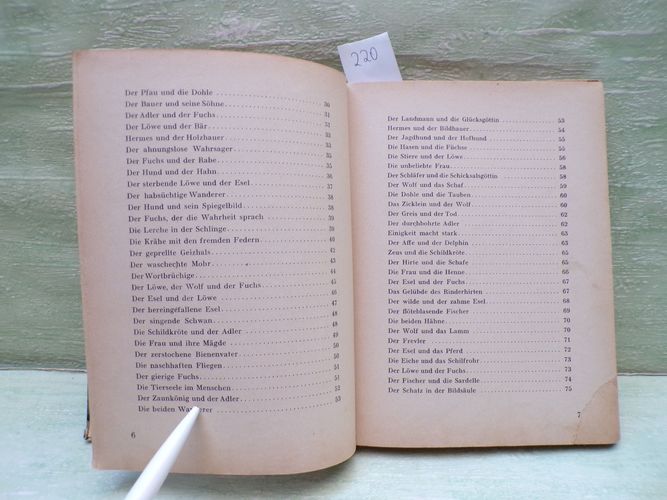 Der Pfau und die Dohle
Der Bauer und seine Söhne 30
Der Adler und der Fuchs 31
Der Löwe und der Bär 31
Hermes und der Holzhauer 33
Der ahnungslose Wahrsager 35
Der Fuchs und der Rabe 36
Der Hund und der Hahn 36
Der sterbende Löwe und der Esel 37
Der habsüchtige Wanderer 38
Der Hund und sein Spiegelbild 38
Der Fuchs, der die Wahrheit sprach 39
Die Lerche in der Schlinge 39
Die Krähe mit den fremden Federn 40
Der geprellte Geizhals 42
Der waschechte Mohr 43
Der Wortbrüchige 44
Der Löwe, der Wolf und der Fuchs 45
Der Esel und der Löwe 46
Der hereingefallene Esel 47
Der singende Schwan 48
Die Schildkröte und der Adler 48
Die Frau und ihre Mägde 49
Der zerstochene Bienenvater 50
Die naschhaften Fliegen 50
Der gierige Fuchs 51
Die Tierseele im Menschen 51
Der Zaunkönig und der Adler 52
Die beiden Wanderer 53
6
220
Der Landmann und die Glücksgöttin 53
Hermes und der Bildhauer 54
Der Jagdhund und der Hofhund 55
Die Hasen und die Füchse 55
Die Stiere und der Löwe 56
Die unbeliebte Frau 58
Der Schläfer und die Schicksalsgöttin 58
Der Wolf und das Schaf 59
Die Dohle und die Tauben 60
Das Zicklein und der Wolf 60
Der Greis und der Tod 62
Der durchbohrte Adler 62
Einigkeit macht stark 63
Der Affe und der Delphin 63
Zeus und die Schildkröte 65
Der Hirte und die Schafe 65
Die Frau und die Henne 66
Der Esel und der Fuchs 67
Das Gelübde des Rinderhirten 67
Der wilde und der zahme Esel 68
Der flöteblasende Fischer 69
Die beiden Hähne 70
Der Wolf und das Lamm 70
Der Frevler 71
Der Esel und das Pferd 72
Die Eiche und das Schilfrohr 73
Der Löwe und der Fuchs 73
Der Fischer und die Sardelle 74
Der Schatz in der Bildsäule 75
7